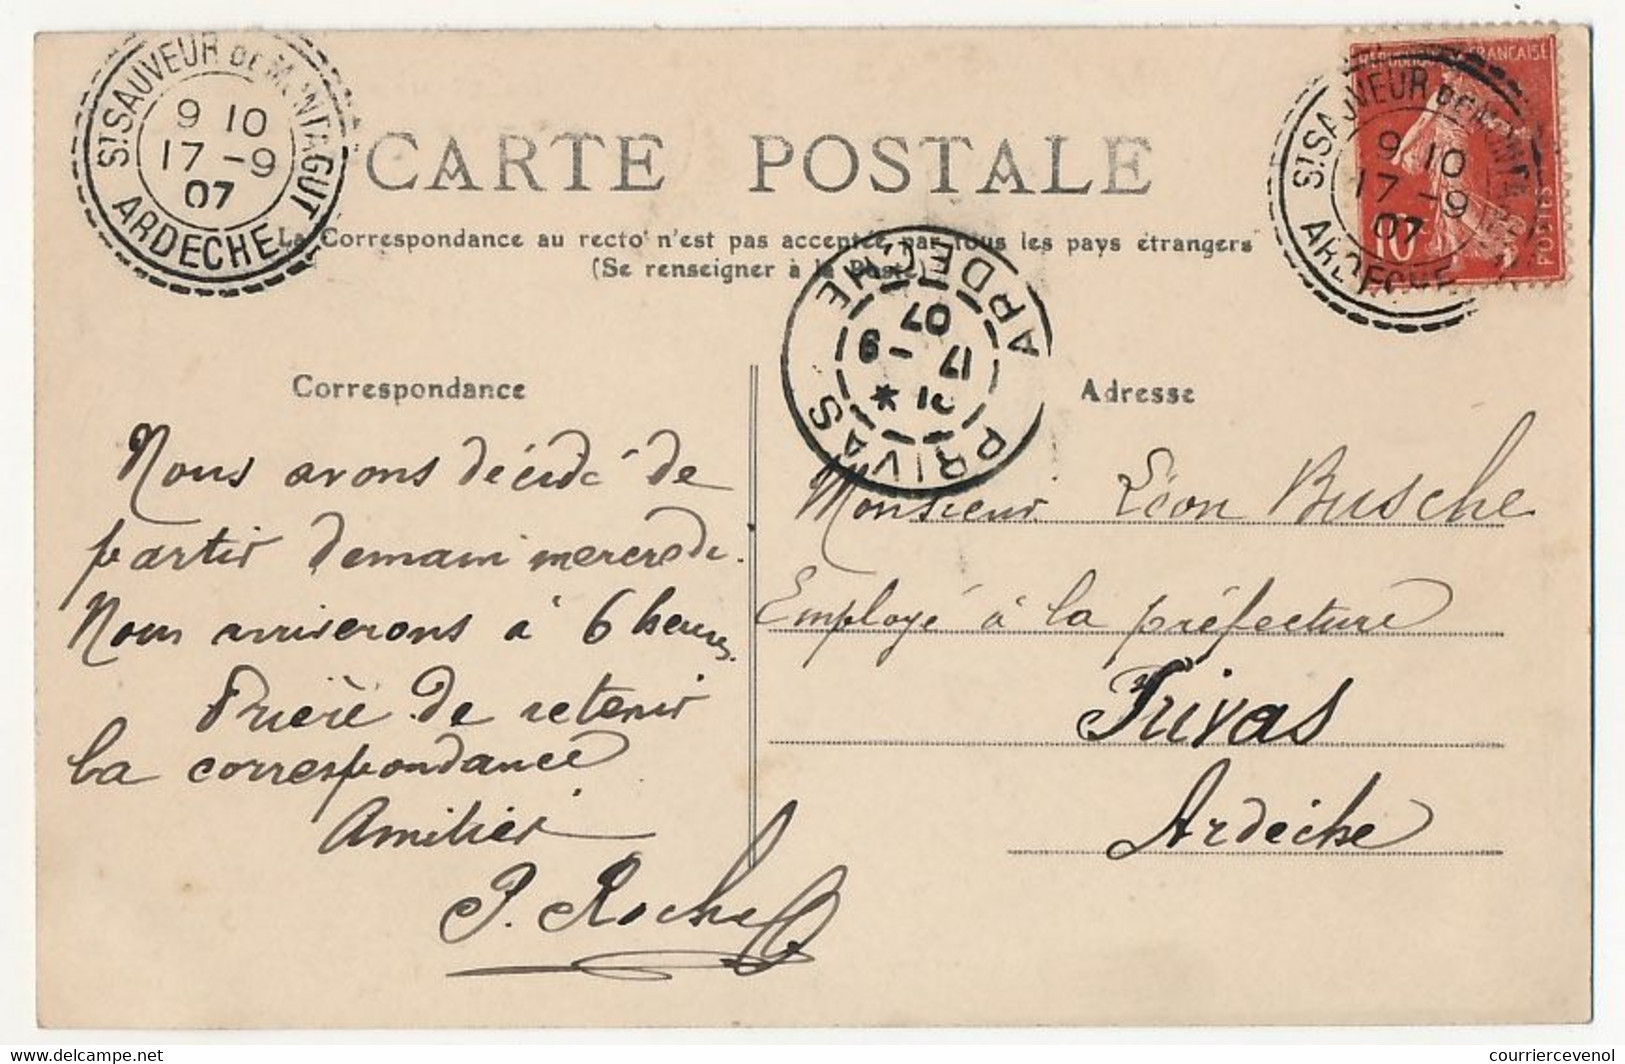 St SAUVEUR DE MONTAGUT
9 10
17 - 9
07
ARDECHE
REPUBLIQUE FRANÇAISE
POSTES
10
St SAUVEUR DE MONTAGUT
9 10
17 - 9
07
ARDECHE
CARTE POSTALE
La Correspondance au recto n'est pas acceptée par tous les pays étrangers
(Se renseigner à la Poste)
PRIVAS
17 - 9
07
ARDECHE
Correspondance
Nous avons décidé de
partir demain mercredi.
Nous arriverons à 6 heures.
Prière de retenir
la correspondance
Amitiés
P. Roche
Adresse
Monsieur Léon Busche
Employé à la préfecture
Privas
Ardèche
delcampe.net
courriercevenol